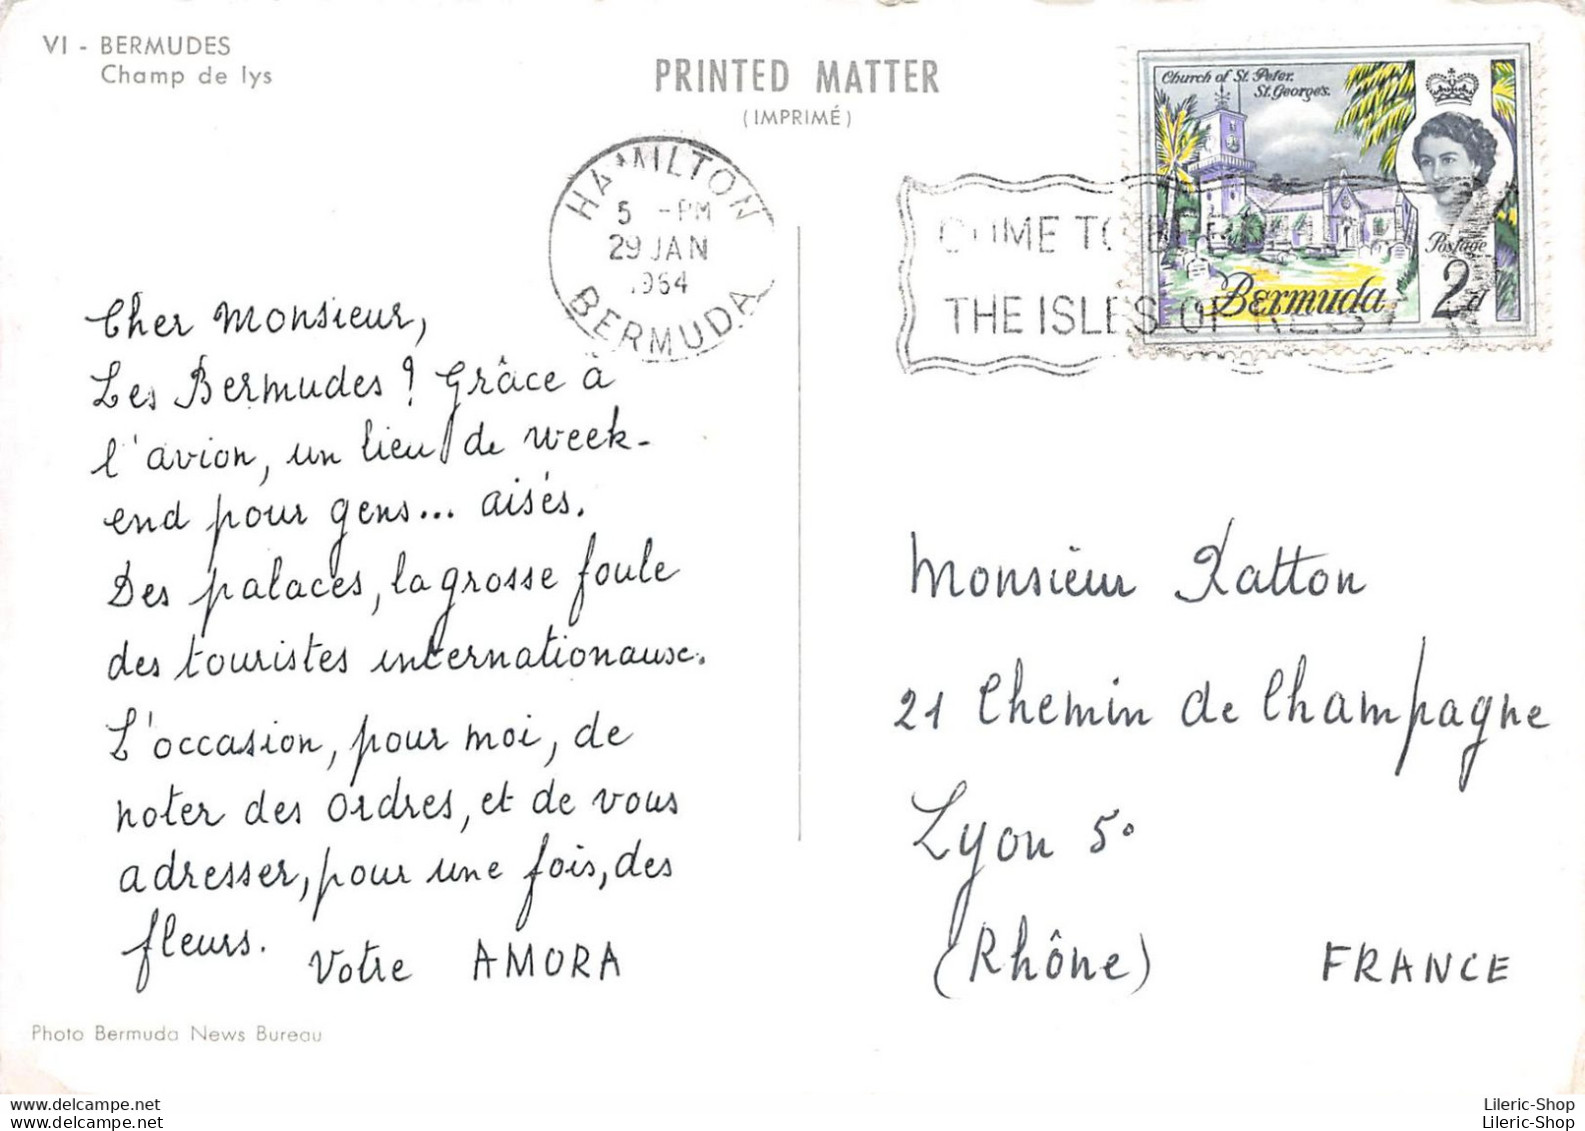 VI - BERMUDES
Champ de lys
PRINTED MATTER
(IMPRIMÉ)
Church of St. Peter,
St. George's.
Postage
2d
Bermuda
HAMILTON
5 -PM
29 JAN
1964
BERMUDA
COME TO BERMUDA
THE ISLES OF REST
Cher Monsieur,
Les Bermudes ! Grâce à
l'avion, un lieu de week-
end pour gens... aisés.
Des palaces, la grosse foule
des touristes internationaux.
L'occasion, pour moi, de
noter des ordres, et de vous
adresser, pour une fois, des
fleurs.
Votre AMORA
Monsieur Katton
21 Chemin de Champagne
Lyon 5°
(Rhône) FRANCE
Photo Bermuda News Bureau
Lileric-Shop
Lileric-Shop
Lileric-Shop
Lileric-Shop